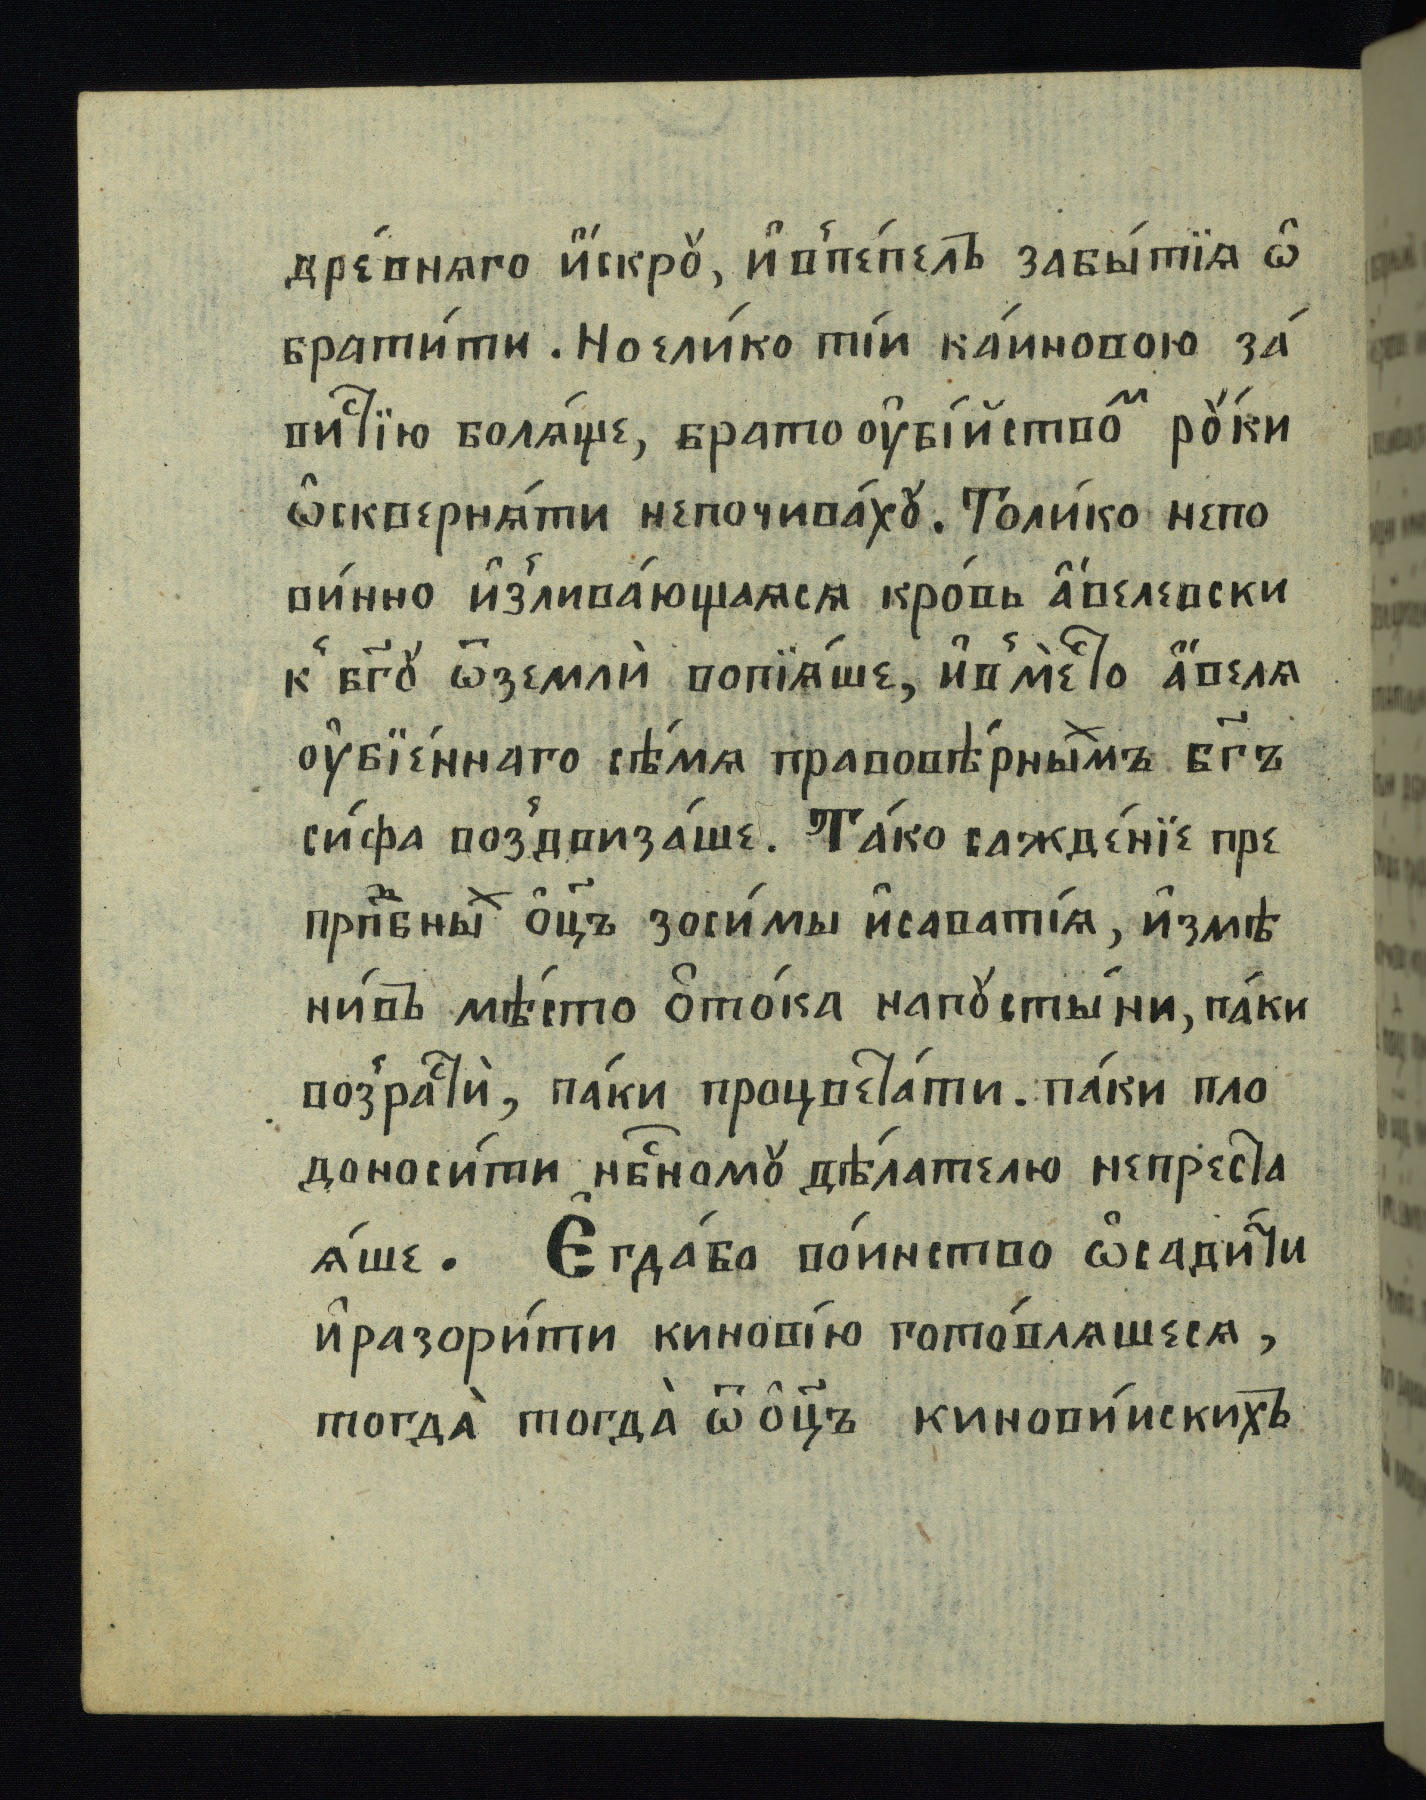 дре́внѧго и҆́скрꙋ, и҆ в̾пе́пелъ забы́тїѧ ѡ҆
брати́ти. Но ели́ко ті́и ка́иновою за́
ви́стїю болѧ́ще, брато ᲂу҆бі́йство́ⷨ рꙋ́ки
ѡ҆сквернѧ́ти непочива́хꙋ. Толи́ко непо
ви́нно и҆з̾лива́ющаѧсѧ кро́вь а҆́велевски
к̾ бг҃ꙋ ѿ земли̾ вопїѧ́ше, и҆ в̾мѐсто а҆́велѧ
ᲂу҆бїе́ннаго сѣ́мѧ правовѣ́рныⷯмъ бг҃ъ
си́фа воз̾двиза́ше. Та́ко сажде́нїе пре
прпⷣбныⷯ ѻ҆ц҃ъ зоси́мы и҆савати́ѧ, и҆змѣ
ни́въ мѣ́сто ѻ҆то́ка напꙋсты́ни, па́ки
воз̾расти̾, па́ки процвета́ти. па́ки пло
доноси́ти нбⷭ҇номꙋ дѣ́лателю непреста
ѧ́ше. Є҆гда́бо во́инство ѡ҆сади́ти
и҆разори́ти кинові́ю гото́влѧшесѧ,
тогда̀ тогда̀ ѿ ѻ҆ц҃ъ кинови́искихъ